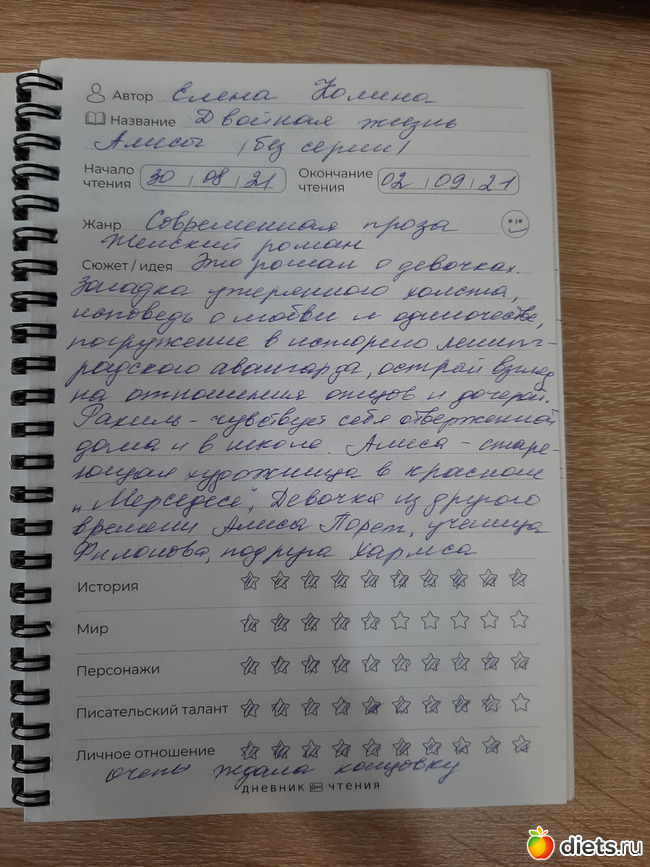 Автор Елена Колина
Название Двойная жизнь
Алисы /без серии/
Начало чтения 30 08 21 Окончание чтения 02 09 21
Жанр Современная проза
Женский роман
Сюжет / идея Это роман о девочках.
Загадка утерянного холста,
исповедь о любви и одиночестве,
погружение в историю ленинг-
радского авангарда, острый взгляд
на отношения отцов и дочерей.
Рахиль - чувствует себя отверженной
дома и в школе. Алиса - старе-
ющая художница в красном
"Мерседесе", Девочка из другого
времени Алиса Порет, ученица
Филонова, подруга Хармса
История
Мир
Персонажи
Писательский талант
Личное отношение
очень ждала концовку
дневник чтения
diets.ru